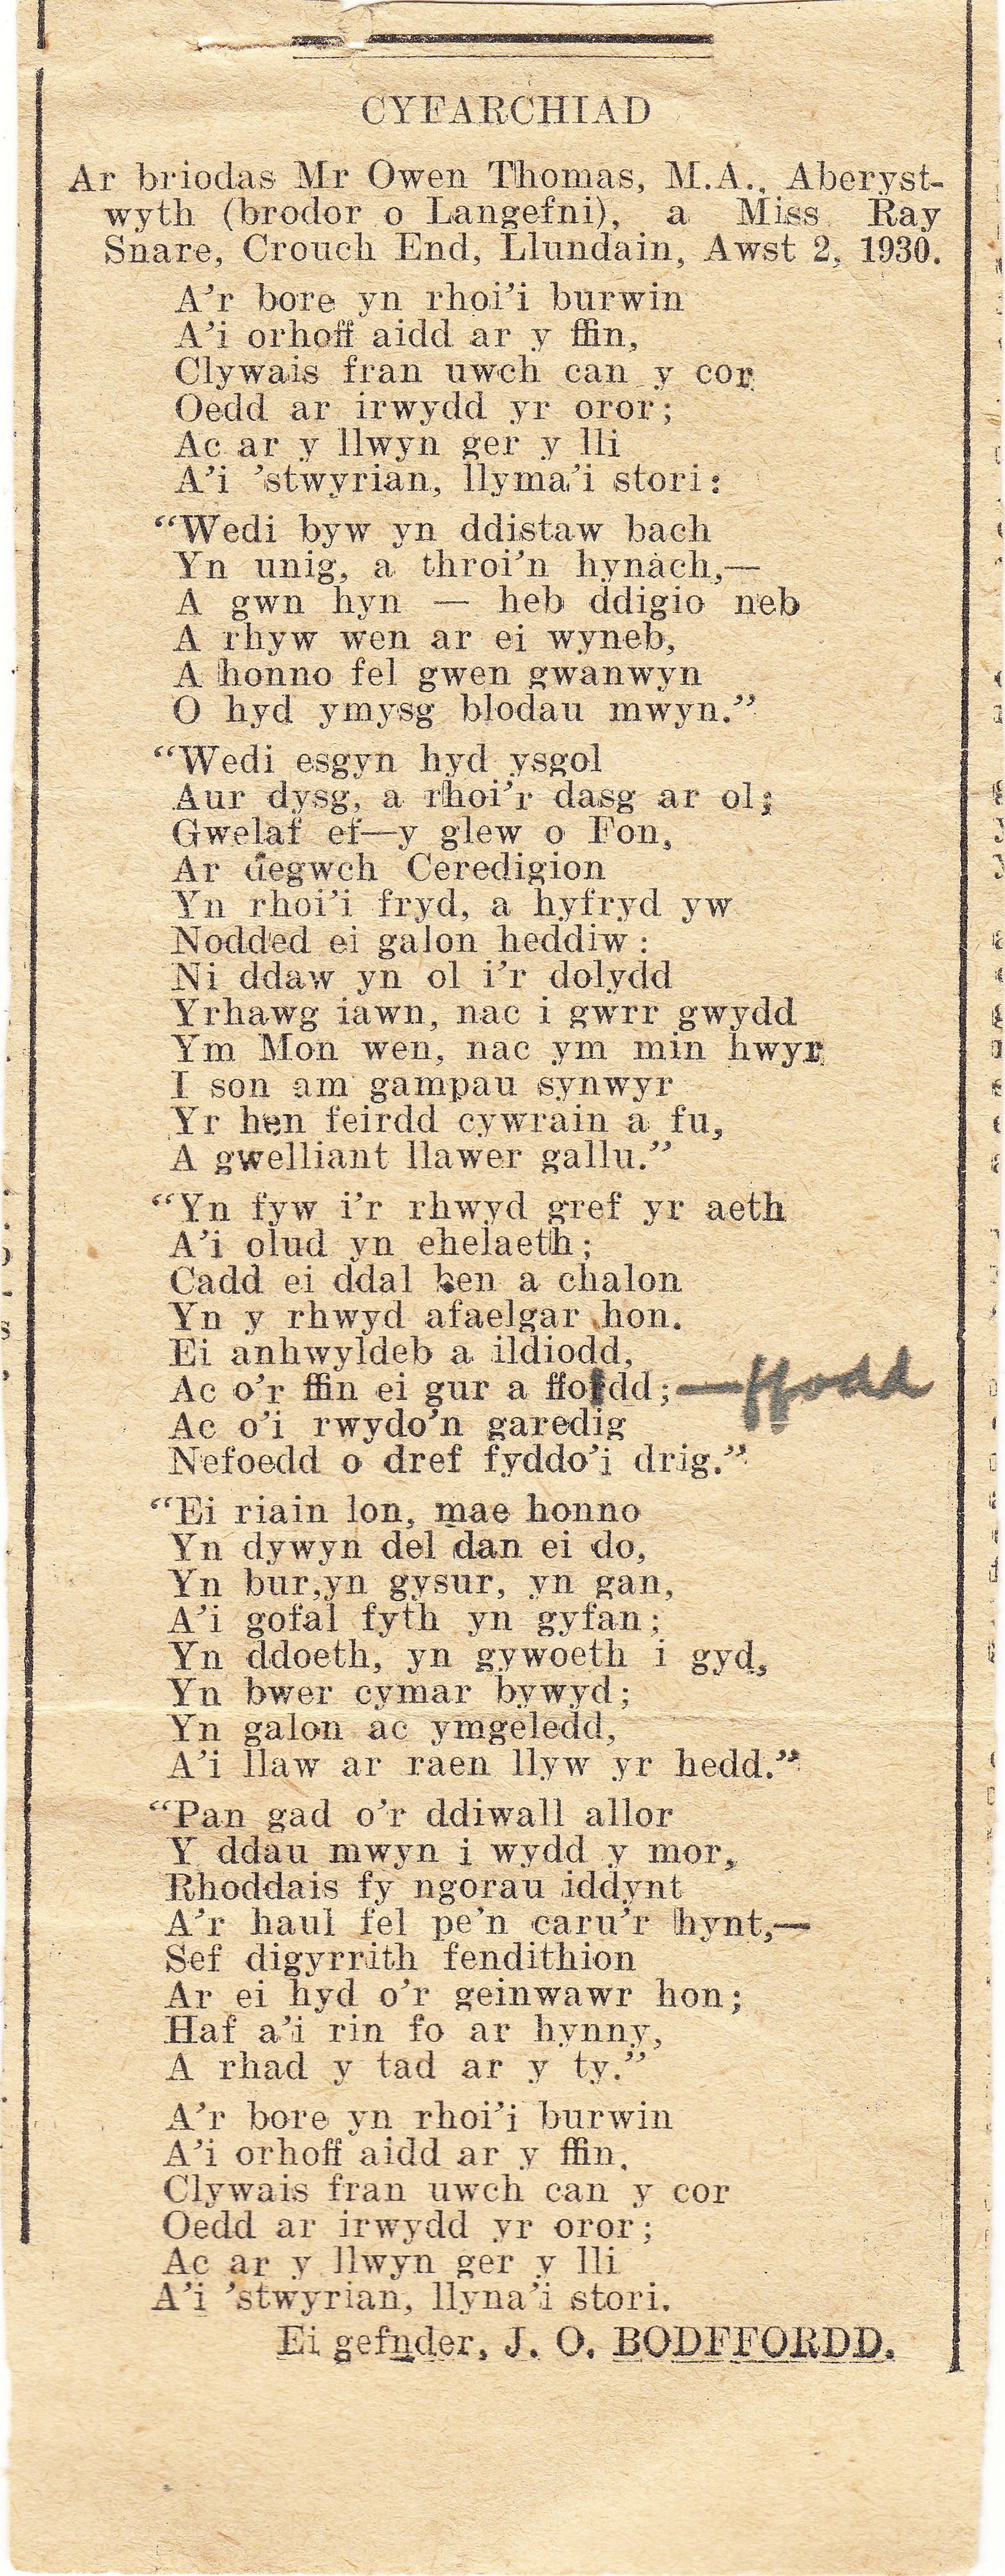 CYFARCHIAD
Ar briodas Mr Owen Thomas, M.A., Aberyst-
wyth (brodor o Langefni), a Miss Ray
Snare, Crouch End, Llundain, Awst 2, 1930.
A'r bore yn rhoi'i burwin
A'i orhoff aidd ar y ffin,
Clywais fran uwch can y cor
Oedd ar irwydd yr oror;
Ac ar y llwyn ger y lli
A'i 'stwyrian, llyma'i stori:
“Wedi byw yn ddistaw bach
Yn unig, a throi'n hynach,—
A gwn hyn — heb ddigio neb
A rhyw wen ar ei wyneb,
A honno fel gwen gwanwyn
O hyd ymysg blodau mwyn.”
“Wedi esgyn hyd ysgol
Aur dysg, a rhoi'r dasg ar ol;
Gwelaf ef—y glew o Fon,
Ar degwch Ceredigion
Yn rhoi'i fryd, a hyfryd yw
Nodded ei galon heddiw:
Ni ddaw yn ol i'r dolydd
Yrhawg iawn, nac i gwrr gwydd
Ym Mon wen, nac ym min hwyr
I son am gampau synwyr
Yr hen feirdd cywrain a fu,
A gwelliant llawer gallu.”
“Yn fyw i'r rhwyd gref yr aeth
A'i olud yn ehelaeth;
Cadd ei ddal ben a chalon
Yn y rhwyd afaelgar hon.
Ei anhwyldeb a ildiodd,
Ac o'r ffin ei gur a ffordd;—ffodd
Ac o'i rwydo'n garedig
Nefoedd o dref fyddo'i drig.”
“Ei riain lon, mae honno
Yn dywyn del dan ei do,
Yn bur,yn gysur, yn gan,
A'i gofal fyth yn gyfan;
Yn ddoeth, yn gywoeth i gyd,
Yn bwer cymar bywyd;
Yn galon ac ymgeledd,
A'i llaw ar raen llyw yr hedd.”
“Pan gad o'r ddiwall allor
Y ddau mwyn i wydd y mor,
Rhoddais fy ngorau iddynt
A'r haul fel pe'n caru'r hynt,—
Sef digyrrith fendithion
Ar ei hyd o'r geinwawr hon;
Haf a'i rin fo ar hynny,
A rhad y tad ar y ty.”
A'r bore yn rhoi'i burwin
A'i orhoff aidd ar y ffin,
Clywais fran uwch can y cor
Oedd ar irwydd yr oror;
Ac ar y llwyn ger y lli
A'i 'stwyrian, llyna'i stori.
Ei gefnder, J. O. BODFFORDD.